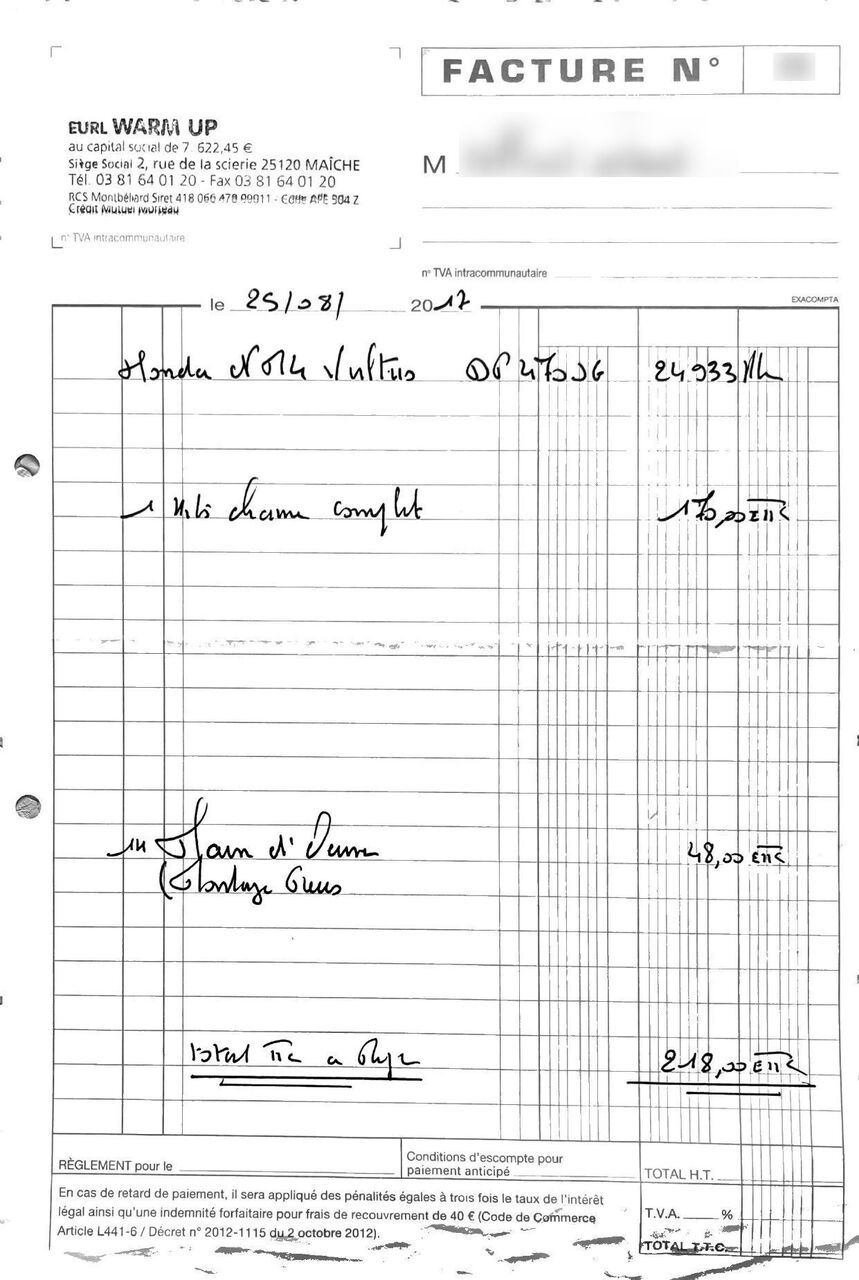 FACTURE N°
EURL WARM UP
au capital social de 7 622,45 €
Siège Social 2, rue de la scierie 25120 MAÎCHE
Tél. 03 81 64 01 20 - Fax 03 81 64 01 20
RCS Montbéliard Siret 418 066 478 00011 - Code APE 504 Z
Crédit Mutuel Morteau
M
n° TVA intracommunautaire
n° TVA intracommunautaire
le 25/08/ 2017
EXACOMPTA
Honda Vultus 24933
1 Kit chaine complet 170,00 E TTC
1H Main d'
48,00 E TTC
(Montage
Total TTC a 218,00 E TTC
RÈGLEMENT pour le
Conditions d'escompte pour
paiement anticipé
TOTAL H.T.
En cas de retard de paiement, il sera appliqué des pénalités égales à trois fois le taux de l'intérêt
légal ainsi qu'une indemnité forfaitaire pour frais de recouvrement de 40 € (Code de Commerce
Article L441-6 / Décret n° 2012-1115 du 2 octobre 2012).
T.V.A. %
TOTAL T.T.C.